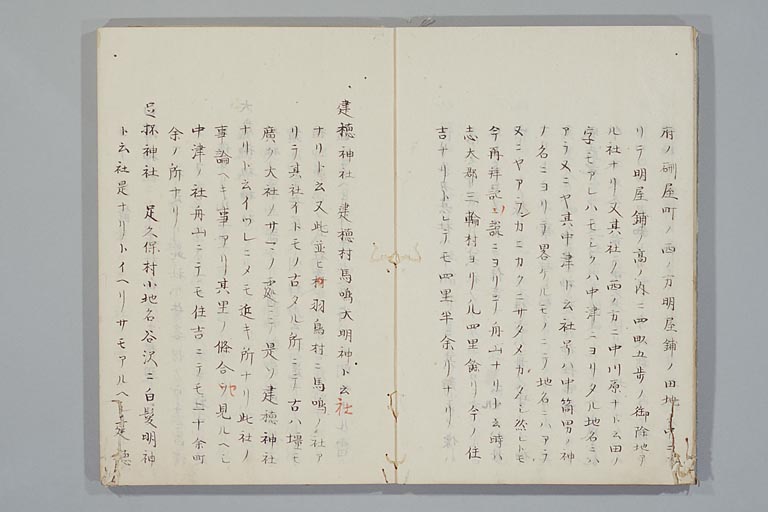 府ノ研屋町ノ西ノ方明屋鋪ノ田地ノ中ニ
リテ明屋鋪ノ高ノ内ニ四畝五歩ノ御除地ア
ル社ナリ又其社ノ西ノ方ニ中川原ナト云田ノ
字モアレハモシクハ中津ニヨリタル地名ニハ
アラヌニヤ其中津ト云社号ハ中筒男ノ神
ノ名ニヨリテ畧ケルモノニテ地名ニハアラ
ヌニヤアランカニカクニサタメガタシ然レトモ
今再拜記ニ説ニヨリニテ舟山ナリト云時ハ
志太郡三輪村ヨリハ四里餘リ今ノ住
吉ナリトシテモ四里半余リナリ
建穂神社 建穂村馬鳴大明神ト云社
ナリト云又此並ヒ村羽鳥村ニ馬鳴ノ社ア
リテ其社イトモノ古タル所ニテ古ハ場モ
廣ク大社ノサマノ處ニテ是ソ建穂神社
ナリト云イツレニメモ近キ所ナリ此社ノ
事論ヘキ事アリ其里ノ條合見ルヘシ
中津ノ社舟山ニテモ住吉ニテモ二十余町
余ノ所ナリ
足坏神社 足久保村小地名谷沢ニ白髪明神
ト云社是ナリトイヘリサモアルヘシ建穂